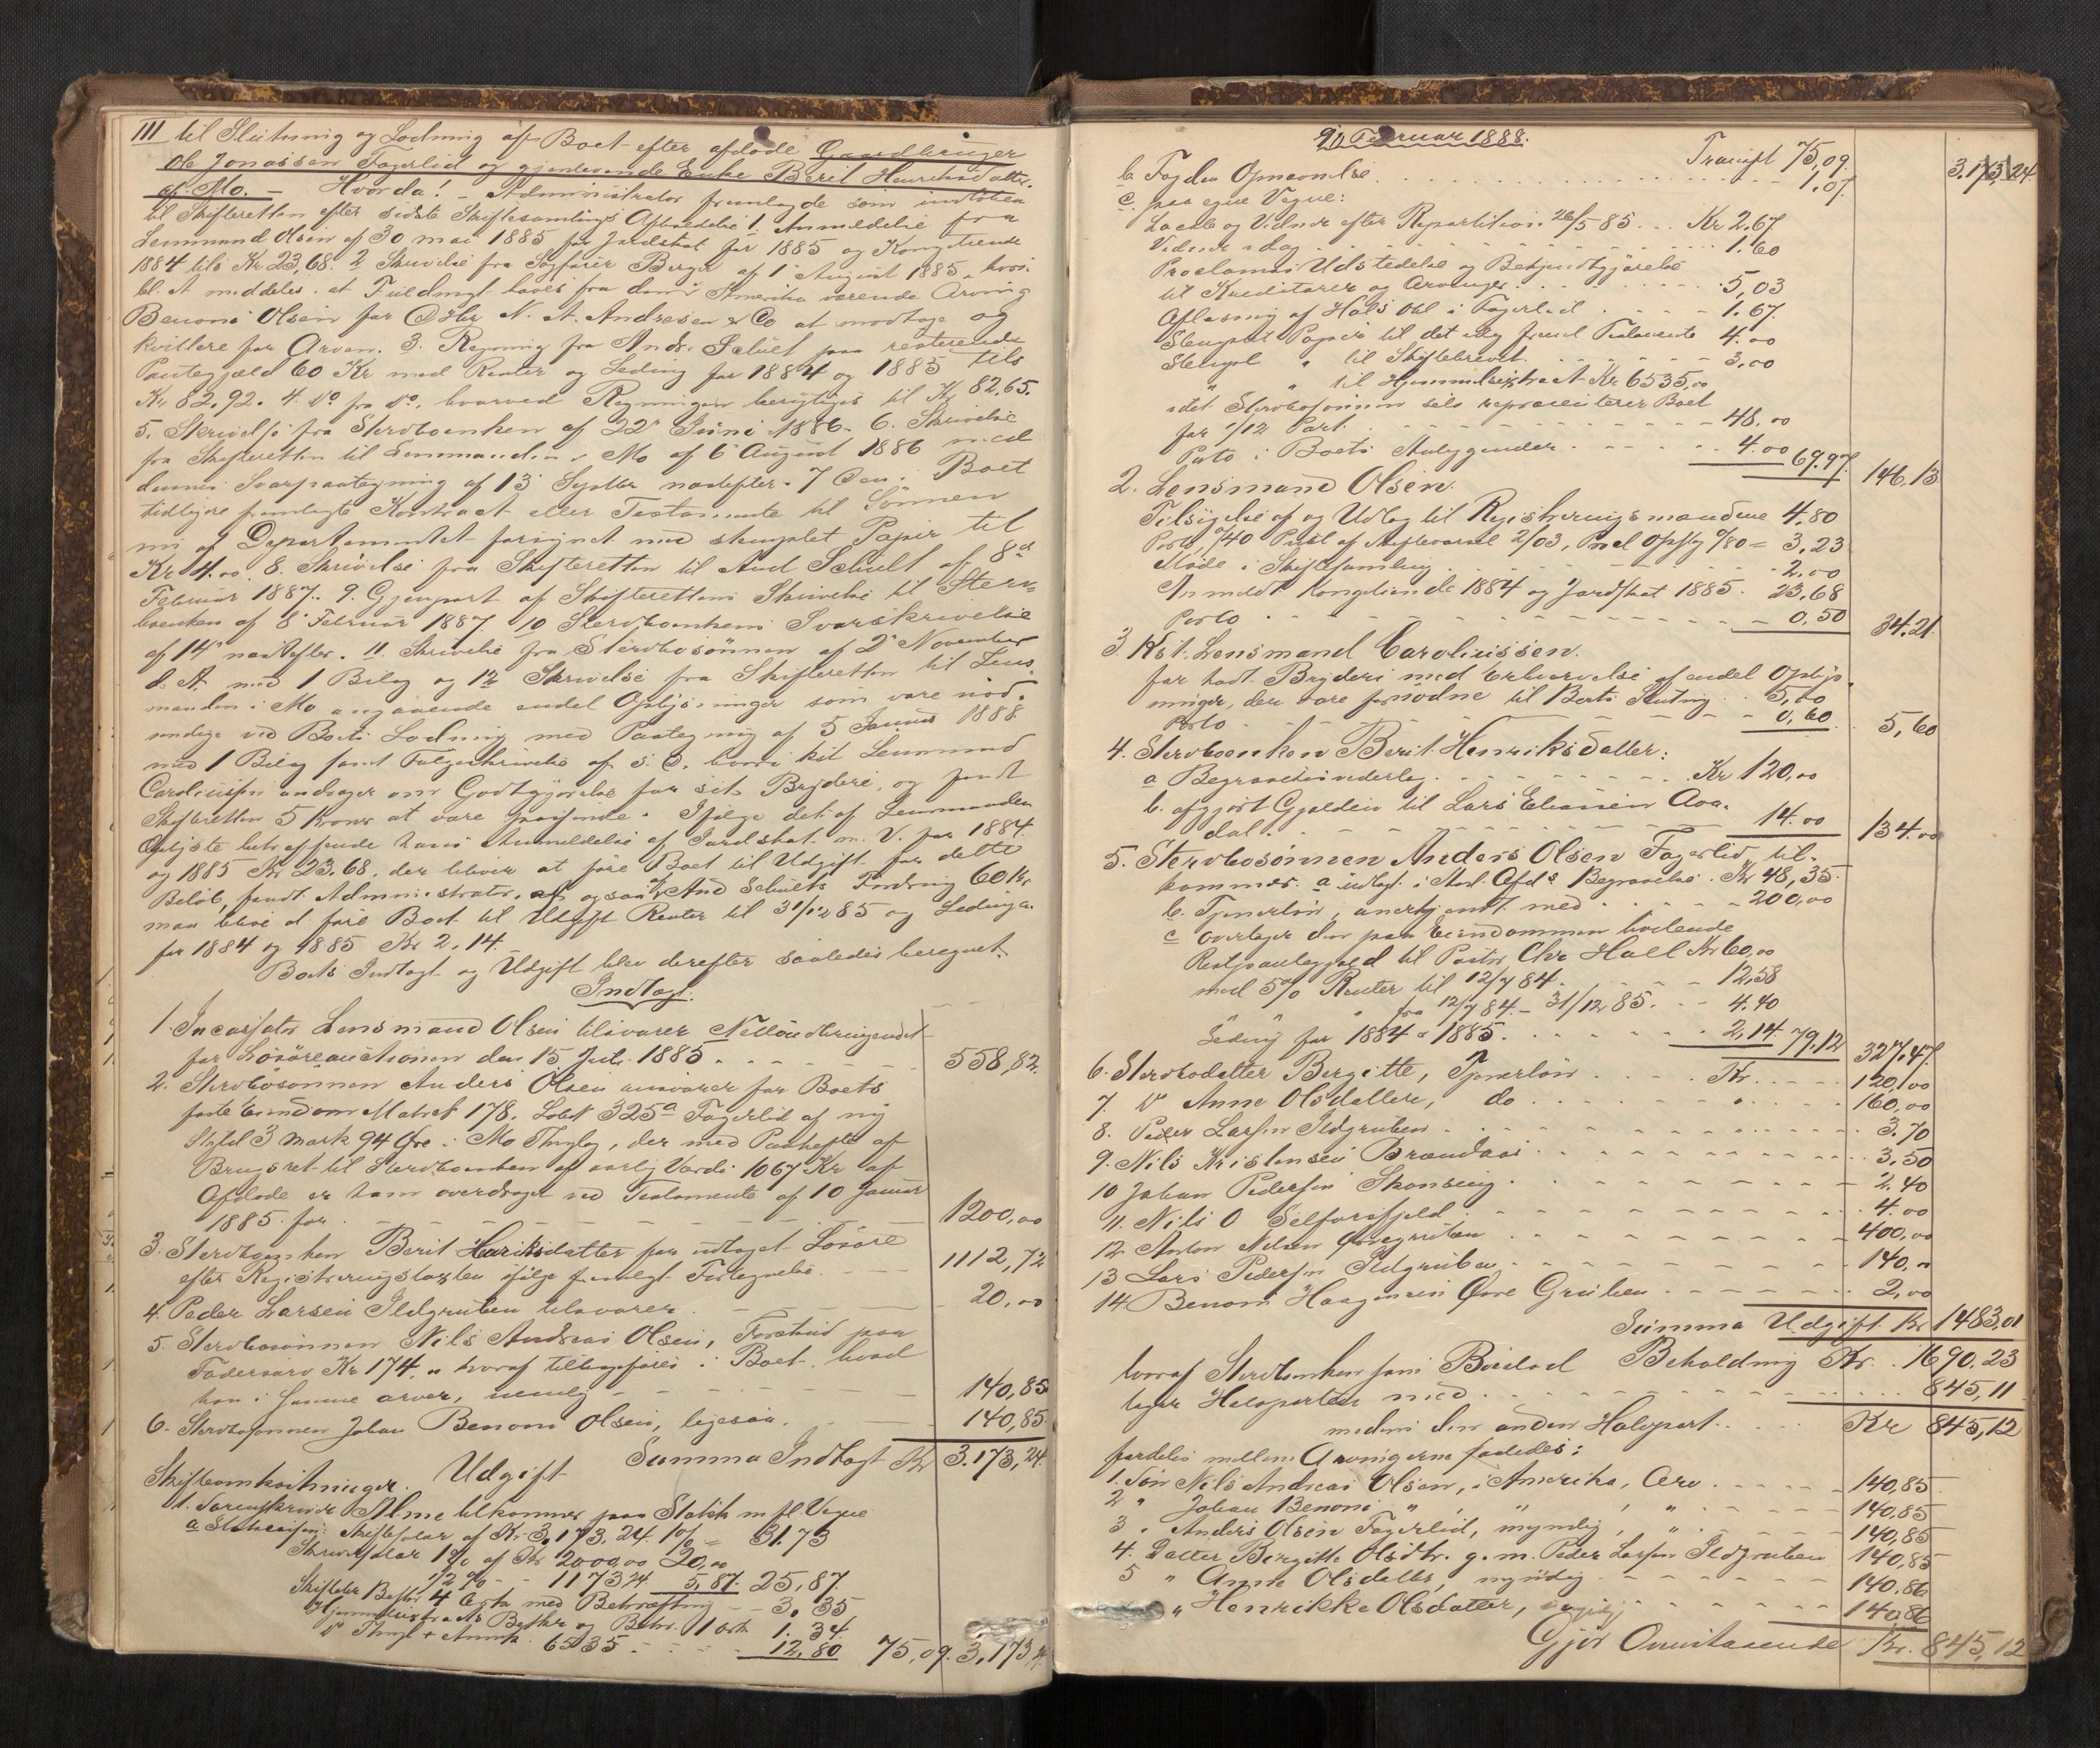 III til Slutning og Lodning af Boet efter afdøde Gaardbruger
Ole Jonassen Fagerlid og gjenlevende Enke Berit Henriksdatter
af Mo. — Hvorda! — Administrator fremlagde som indkomen
til Skifteretten efter sidste Skiftesamlings Afholdelse 1. Anmeldelse fra
Lensmand Olsen af 30 mai 1885 for Jordskat for 1885 og Kongetiende
1884 tils Kr 23,68. 2 Skrivelse fra Sagfører Berger af 1 August 1885, hvori
bl. A. meddeles at Fuldmagt haves fra den i Amerika værende Arving
Benoni Olsen for Dhr N. A. Andresen & Co at modtage og
kvittere for Arven. 3. Regning fra Andr. Schult paa resterende
Pantegjæld 60 Kr med Renter og Leding for 1884 og 1885 tils
Kr 82,92. 4. Do fra do, hvorved Regningen berigtiges til Kr 82,65.
5. Skrivelse fra Stervboenken af 22 Juni 1886. 6. Skrivelse
fra Skifteretten til Lensmanden i Mo af 6 August 1886 med
dennes Svarpaategning af 13 Septbr næstefter. 7 Den i Boet
tidligere fremlagte Kontract eller Testamente til Sønnen
nu af Departementet forsynet med stemplet Papir til
Kr 4.00. 8. Skrivelse fra Skifteretten til And Schult af 8de
Februar 1887. 9. Gjenpart af Skifterettens Skrivelse til Sterv-
boenken af 8 Februar 1887. 10 Stervboenkens Svarskrivelse
af 14 næstefter. 11. Skrivelse fra Stervbosønnen af 2 November
d. A. med 1 Bilag og 12 Skrivelse fra Skifteretten til Lens-
manden i Mo angaaende endel Oplysninger som vare nød-
vendige ved Boets Lodning med Paategning af 5 Januar 1888
med 1 Bilag samt Følgeskrivelse af s. D. hvori kst Lensmand
Caroliussen andrager om Godtgjørelse for sit Bryderi, og fandt
Skifteretten 5 Kroner at være passende. Ifølge det af Lensmanden
Oplyste betræffende hans Anmeldelse af Jordskat m. V. for 1884
og 1885 Kr 23.68, der bliver at føre Boet til Udgift for dette
Beløb, fandt Administrator, at ogsaa af And Schults Fordring 60 Kr
maa blive at føre Boet til Udgift Renter til 31/12 85 og Leding
for 1884 og 1885 Kr 2,14.
Boets Indtægt og Udgift blev derefter saaledes beregnet.
Indtægt.
1. Incassator Lensmand Olsen tilsvarer Nettoudbringendet
for Løsøreauctionen den 15 Juli 1885 558,82.
2. Stervbosønnen Anders Olsen ansvarer for Boets
faste Eiendom Matrik 178. Løbet 325a Fagerlid af ny
Skyld 3 Mark 94 Øre i Mo Thinglag, der med Paaheftelse af
Brugsret til Stervboenken af aarlig Værdi 1067 Kr af
Afdøde er ham overdraget ved Testamente af 10 Januar
1885. for 1200,00
3. Stervboenken Berit Henriksdatter for udtaget Løsøre
efter Registreringstaxten ifølge fremlagt Fortegnelse. 1112,72
4. Peder Larsen Ildgruben tilsvarer 20,00
5. Stervbosønnen Nils Andreas Olsen, Forskud paa
Fædrearv Kr 174,„ hvoraf tilbageføres i Boet, hvad
han i samme arver, nemlig 140,85
6. Stervbosønnen Johan Benoni Olsen, ligesaa. 140,85
Summa Indtægt Kr 3.173,24.
Udgift
Skifteomkostninger.
1. Sorenskriver Alme tilkommer paa Statsk m fl Vegne
a Statscassen: Skiftesolar af Kr 3,173,24. 1% = 31.73
Skriversolar 1% af Kr 2000,00 20,00
1/2% - 1173 24 5,87. 25,87.
Skiftebr Beskr 4 Arks med Bekræftning 3,35
Hjemmelsextracts Beskr og Bekr. 1 ark 1.34
Do Thingl + Annot. 6535 12,80 75,09. 3,173,24
9/10 Februar 1888.
Transpt 75,09. 3.173,24
b. Fogden Opnævnelse 1,07.
c. paa egne Vegne:
Localt og Vidner efter Repartition 26/5 85 Kr 2.67.
Vidner idag 1.60
Proclamas Udstedelse og Bekjendtgjørelse
til Kreditorer og Arvinger 5,03
Aflæsning af Hals Obl i Fagerlid 1.67.
Stemplet Papir til det idag freml Testamente 4.00
Stempl „ til Skiftebrevet 3,00
„ „ til Hjemmelsextract Kr 6535,00
idet Stervbosønnen selv repræsenterer Boet
for 1/12 Part 48.00
Porto i Boets Anliggender 4.00 69.97. 146.13
2. Lensmand Olsen.
Tilsigelse af og Udlæg til Registreringsmændene 4,80
3.23
Møde i Skiftesamling 2.00
Anmeldt Kongetiende 1884 og Jordskat 1885. 23,68
Porto 0,50 34.21.
3. Kst. Lensmand Caroliussen.
for havt Bryderi med Erhvervelse af endel Oplys-
ninger, der vare fornødne til Boets Slutning 5,00
Porto 0,60 5,60
4. Stervboenken Berit Henriksdatter:
a Begravelsesudlæg Kr 120,00
b. afgjort Gjælden til Lars Eliasen Ava-
dal. 14.00 134.00
5. Stervbosønnen Anders Olsen Fagerlid til-
kommer. a udlagt i Anl. Afds Begravelse Kr 48,35.
b. Tjenerløn, anerkjendt med 200,00
c overtager den paa Eiendommen hvilende
Restpantegjæld til Pastor Chr Hall Kr 60,00
med 5% Renter til 12/7 84 12,58
„ fra 12/7 84 – 31/12 85 4.40
Leding for 1884 & 1885 2,14 79,12 327.47.
6. Stervbodatter Birgitte, Tjenerløn Kr 120,00
7. Do Anne Olsdatter, do 160,00
8. Peder Larsen Ildgruben 3.70
9. Nils Kristensen Brændaas 3.50
10 Johan Pedersen Skonseng 2.40
11. Nils O Selforsfjeld 4.00
12 Anton Nilsen Øvregruben 400,00
13 Lars Pedersen Ildgruben 140,„
14 Benoni Haagensen Øvre Gruben 2,00
Summa Udgift Kr 1483,01
Beholdning Kr. 1690.23
hvoraf Stervboenken som Boeslod
tager Halvparten med 845,11
medens den anden Halvpart Kr 845,12
fordeles mellem Arvingerne saaledes:
1. Søn Nils Andreas Olsen, i Amerika, Arv 140,85
2 „ Johan Benoni „ „ , „ 140,85
3 „ Anders Olsen Fagerlid, myndig, „ 140,85
4. Datter Birgitte Olsdtr. g. m. Peder Larsen Ildgruben 140,85
5 „ Anne Olsdatter, myndig 140,86
„ Henrikke Olsdatter, 140,86
Gjør Ovenstaaende Kr. 845,12